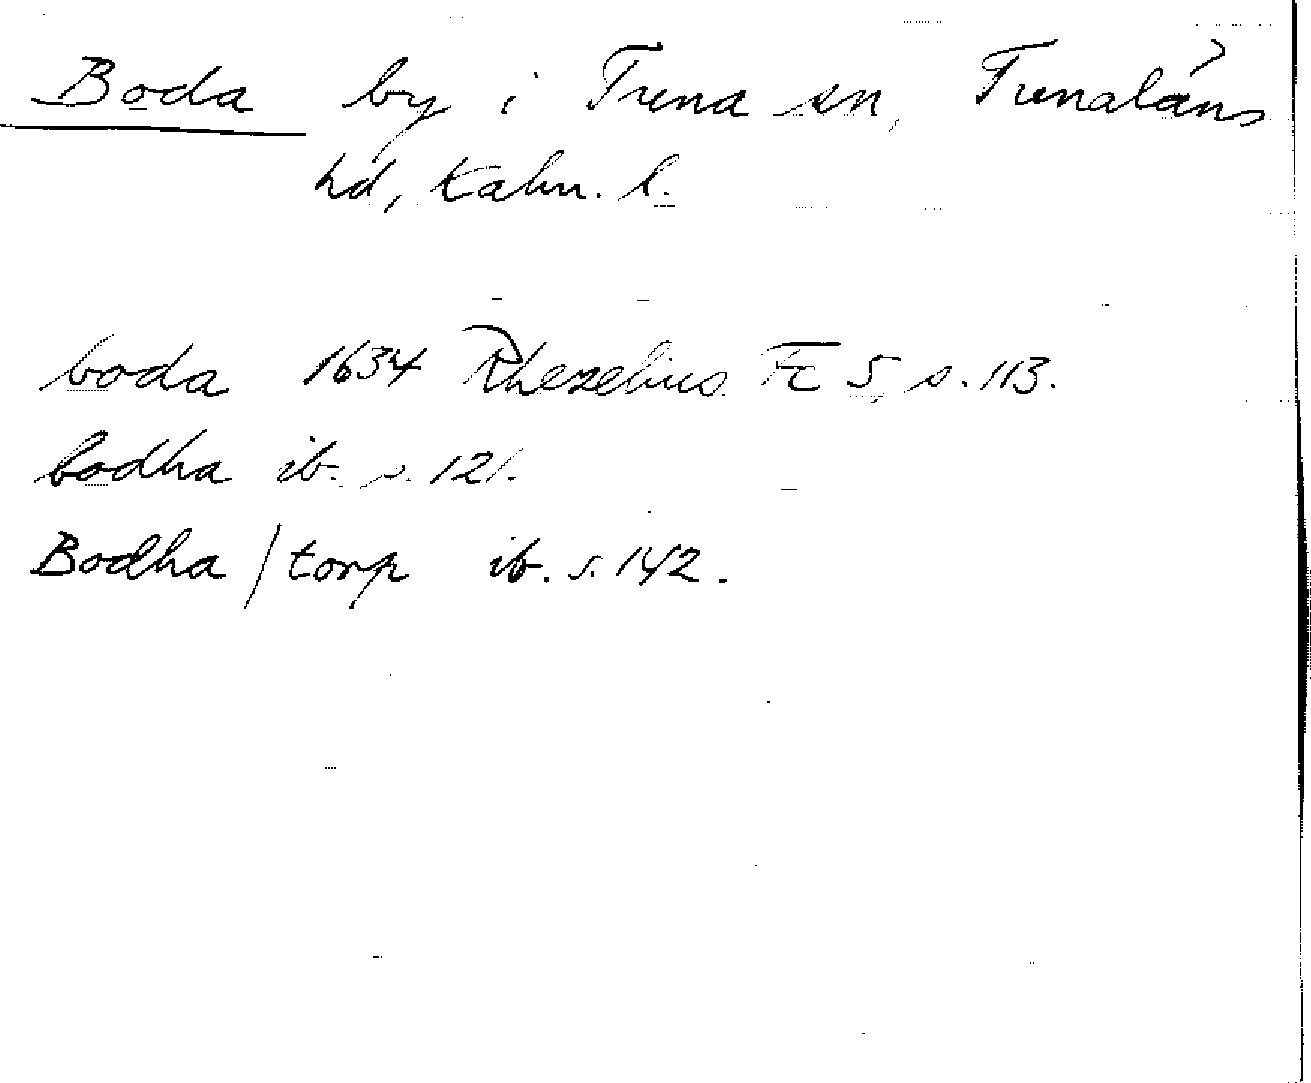 Boda by i Tuna sn, Tunaläns
hd, Kalm. l.
boda 1634 Rhezelius Fc 5, s. 113.
bodha ib. s. 121.
Bodha / torp ib. s. 142.